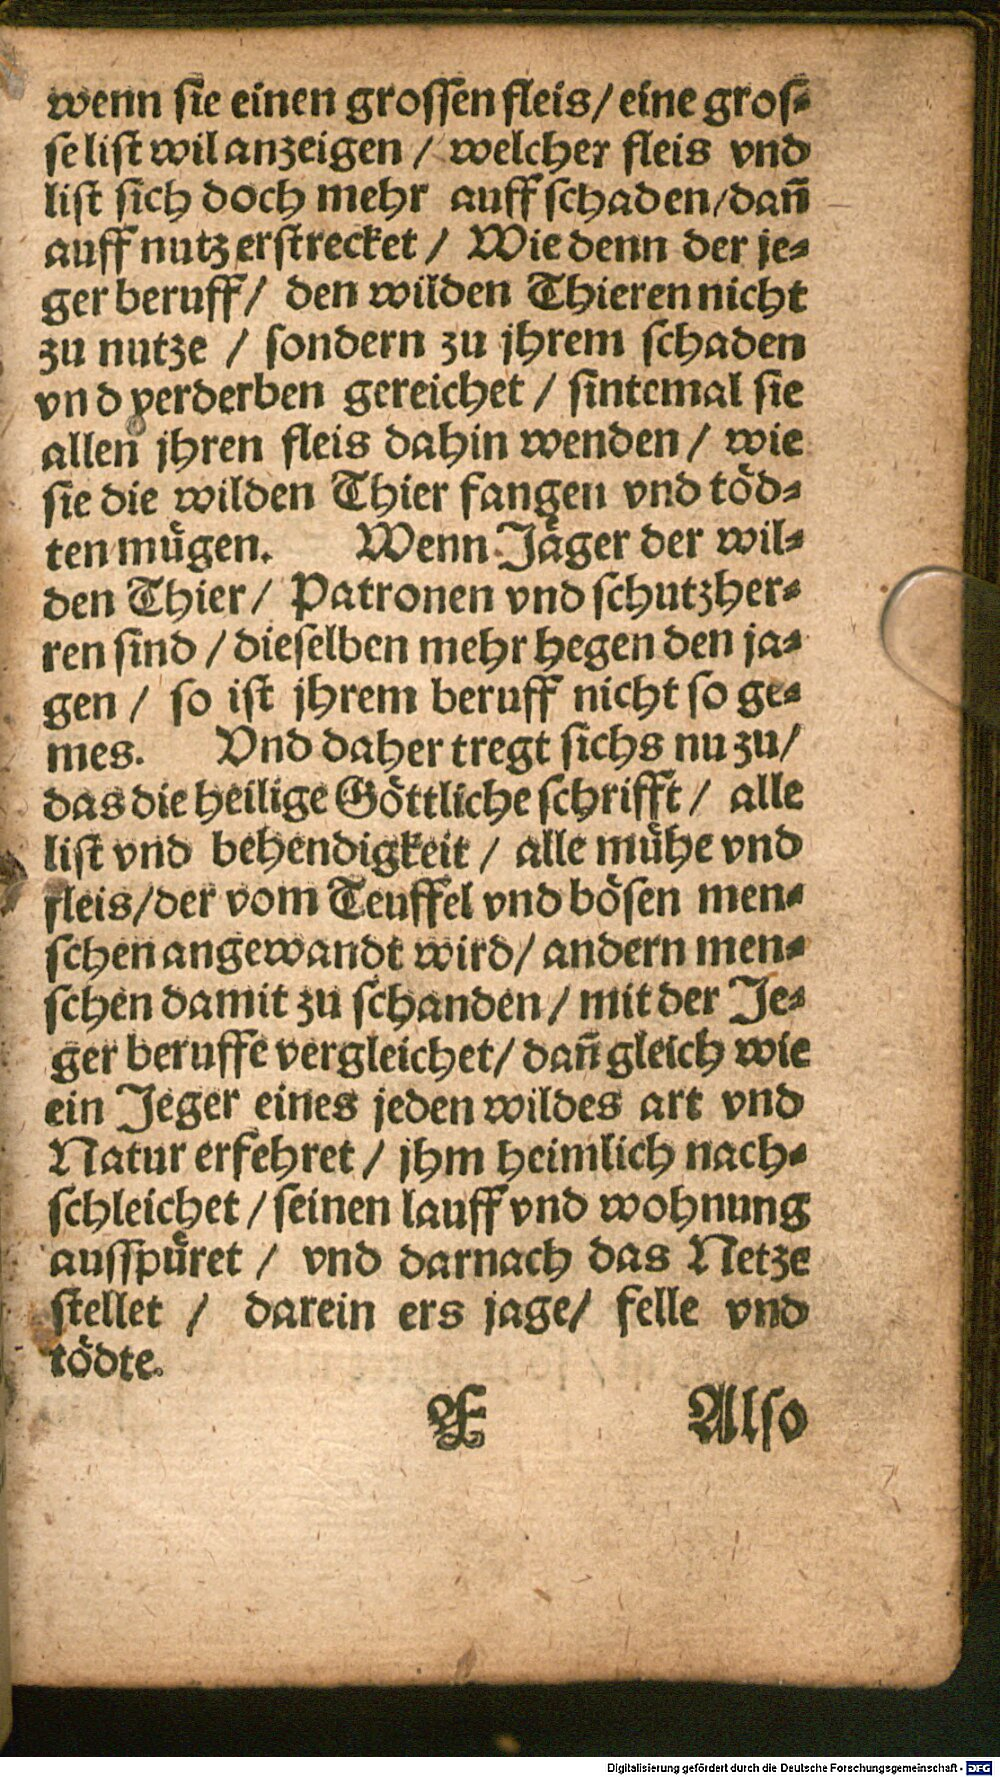 wenn ſie einen groſſen fleis / eine groſ⸗
ſe liſt wil anzeigen / welcher fleis vnd
liſt ſich doch mehr auff ſchaden / dañ
auff nutz erſtrecket / Wie denn der je⸗
ger beruff / den wilden Thieren nicht
zu nutze / ſondern zu jhrem ſchaden
vnd verderben gereichet / ſintemal ſie
allen jhren fleis dahin wenden / wie
ſie die wilden Thier fangen vnd toͤd⸗
ten muͤgen. Wenn Jaͤger der wil⸗
den Thier / Patronen vnd ſchutzher⸗
ren ſind / dieſelben mehr hegen den ja⸗
gen / ſo iſt jhrem beruff nicht ſo ge⸗
mes. Vnd daher tregt ſichs nu zu /
das die heilige Goͤttliche ſchrifft / alle
liſt vnd behendigkeit / alle muͤhe vnd
fleis / der vom Teuffel vnd boͤſen men⸗
ſchen angewandt wird / andern men⸗
ſchen damit zu ſchanden / mit der Je⸗
ger beruffe vergleichet / dañ gleich wie
ein Jeger eines jeden wildes art vnd
Natur erfehret / jhm heimlich nach⸗
ſchleichet / ſeinen lauff vnd wohnung
ausſpuͤret / vnd darnach das Netze
ſtellet / darein ers jage / felle vnd
toͤdte.
Æ Alſo
Digitalisierung gefördert durch die Deutsche Forschungsgemeinschaft - DFG